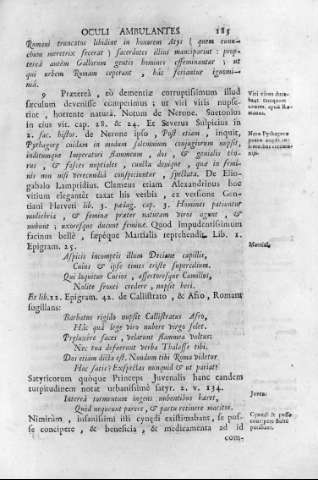 OCULI AMBULANTES 185
Romani truncatus libidine in honorem Atys (quem eunuchum
meretrix fecerat) sacerdotes illius manciparint: propterea
autem Gallorum gentis homines effeminantur; ut
qui urbem Romam ceperunt, hac feriantur ignominiâ.
9 Prætereà, eò dementiæ corruptissimum illud
sæculum devenisse comperimus; ut viri viris nuperint,
hortente naturâ. Notum de Nerone. Suetonius
in ejus vit. cap. 28. & 24. Et Severus Sulpicius in
2. sac. histor. de Nerone ipso, Post etiam, inquit,
Pythagoræ cuidam in modum solemnium conjugiorum nupsit;
inditumque Imperatori flammeum, dos, & genialis torus,
& faces nuptiales, cuncta denique, quæ in feminis
non nisi verecundè conspiciuntur, spectata. De Eliogabalo
Lampridius. Clemens etiam Alexandrinus hoc
vitium eleganter taxat his verbis, ex versione Gentiani
Herveti lib. 3. pædag. cap. 3. Homines patiuntur
muliebria, & feminæ præter naturam viros agunt, &
nubunt; uxoresque ducunt feminæ. Quod Impudentissimum
facinus bellè, sæpèque Martialis reprehendit. Lib. 1.
Epigram. 25.
Aspicis incomptis illum Deciane capillis,
Cuius & ipse times triste supercilium.
Qui loquitur Curios, assertoresque Camillos,
Nolite fronti credere, nupsit heri.
Ex lib. 12. Epigram. 42. de Callistrato, & Afro, Romam
sugillans:
Barbatus rigido nupsit Callistratus Afro,
Hâc quâ lege viro nubere virgo solet.
Præluxêre faces, velarunt flammea vultus:
Nec tua defuerunt verba Thalasse tibi.
Dos etiam dicta est. Nondum tibi Roma videtur
Hoc satis? Exspectas nunquid & ut pariat?
Satyricorum quoque Princeps Juvenalis hanc eamdem
turpitudinem notat urbanissimè satyr. 2. v. 134.
Interea tormentum ingens nubentibus haret,
Quòd nequeant parere, & partu retinere maritos.
Nimirùm, insanissimi isti cynædi existimabant, se posse
concipere, & beneficia, & medicamenta ad id
com-
Martial.
Juven.